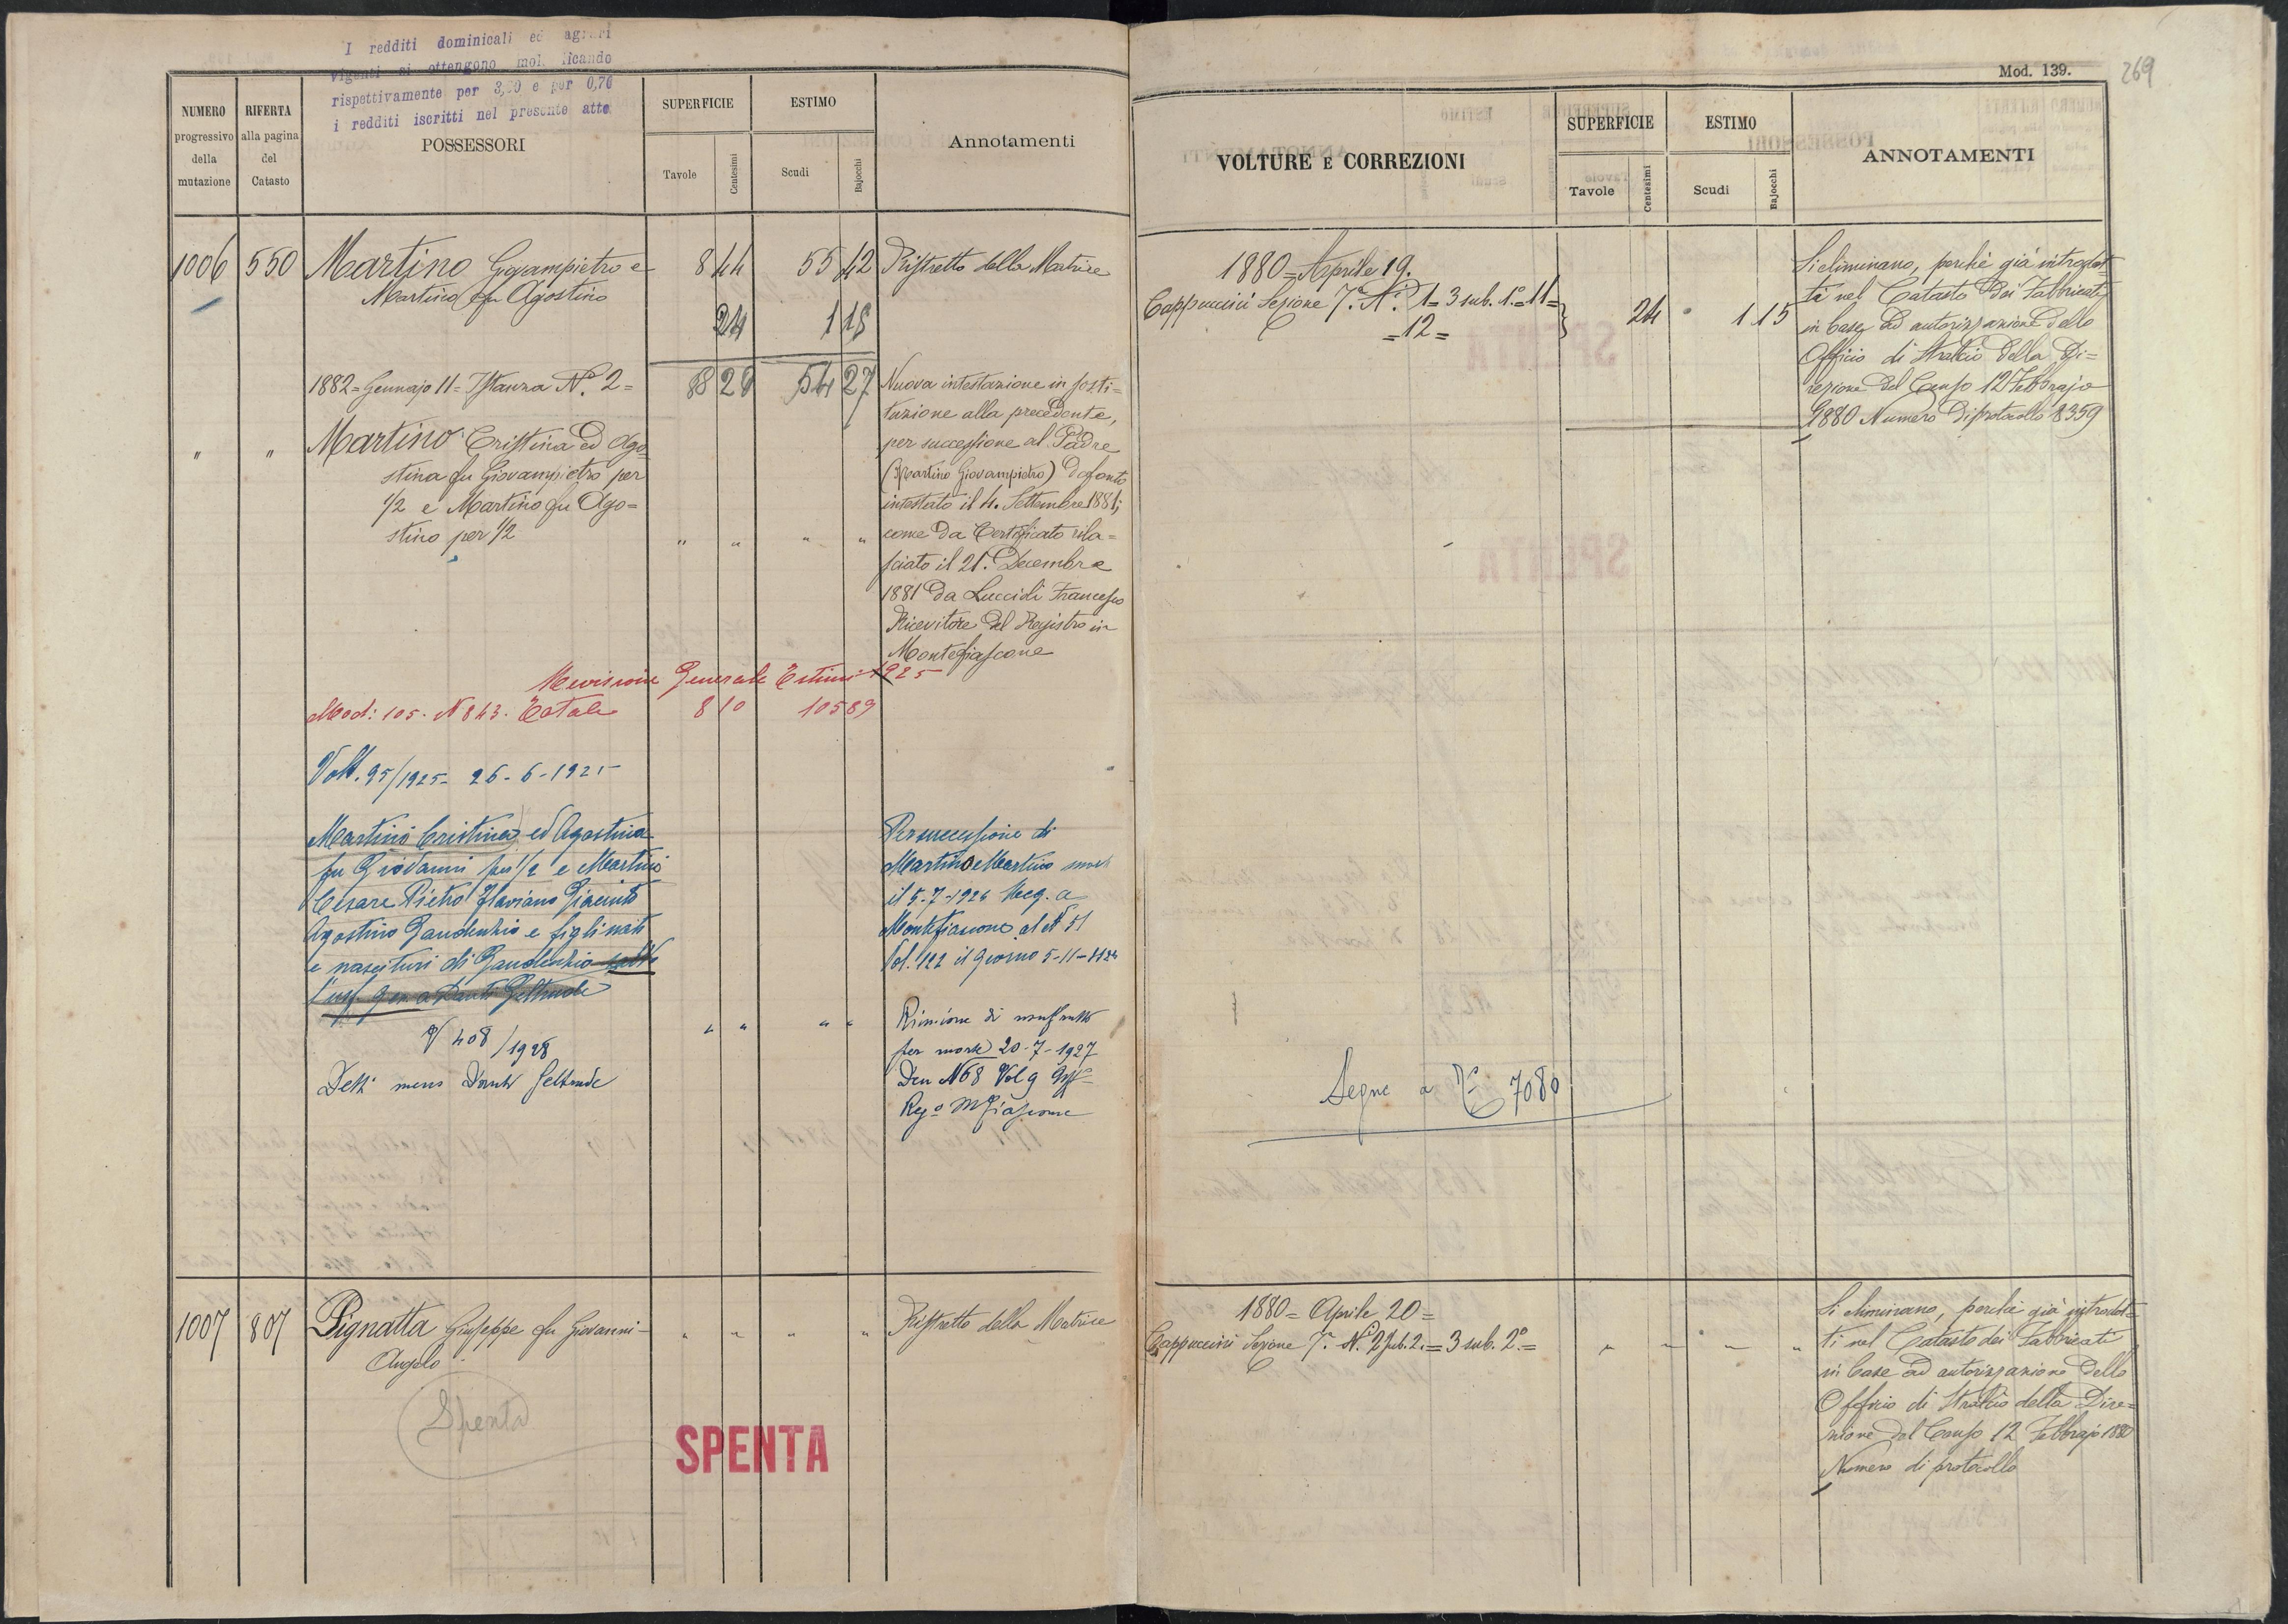 I redditi dominicali ed agrari
vigenti si ottengono mol licando
rispettivamente per 3,00 e per 0,76
i redditi iscritti nel presente atto
NUMERO
progressivo
della
mutazione
RIFERTA
alla pagina
del
Catasto
POSSESSORI
SUPERFICIE
Tavole
Centesimi
ESTIMO
Scudi
Bajocchi
Annotamenti
1006 550 Martino Giovampietro e 8 44 55 42 Ristretto della Matrice
Martino fu Agostino
24 1 15
1882 = Gennajo 11 = Istanza N.° 2 = 8 20 54 27
Nuova intestazione in sosti=
tuzione alla precedente,
per successione al Padre
(Martino Giovampietro) defonto
intestato il 4. Settembre 1881;
come da Certificato rila=
sciato il 21. Decembre
1881 da Luccioli Francesco
Ricevitore del Registro in
Montefiascone
" " Martino Cristina ed Ago
stina fu Giovampietro per
1/2 e Martino fu Ago=
stino per 1/2 " " " "
Revisione Generale Estimi 1925
Mod: 105. N 843. Totale 8 10 105 89
Volt. 95/1925 - 26-6-1925
Martino Cristina ed Agostina
fu Giovanni per 1/2 e Martino
Cesare Pietro Flaviano Giacinto
Agostino Gaudenzio e figli nati
e nascituri di Gaudenzio
Per successione di
Martino Martino
il 5-7-1924 Reg. a
Montefiascone al N 51
Vol. 122 il giorno 5-11-1924
V/ 408/1928 " " " "
Detti meno Geltrude
Riunione di usufrutto
per morte 20-7-1927
Den N 68 Vol 9
Reg° MFiascone
1007 807 Pignatta Giuseppe fu Giovanni- " " " " Ristretto della Matrice
Angelo
Spenta
SPENTA
Mod. 139.
269
VOLTURE E CORREZIONI
SUPERFICIE
Tavole
Centesimi
ESTIMO
Scudi
Bajocchi
ANNOTAMENTI
1880 = Aprile 19.
Cappuccini Sezione 7.ª N.i 1 = 3 sub. 1.° = 11 =
= 12 =
24 1 15
Si eliminano, perchè già introdot
ti nel Catasto dei Fabbricati
in base ad autorizzazione dello
Officio di Stralcio della Di=
rezione del Censo 12 Febbrajo
1880 Numero di protocollo 8359
Segue a 7080
1880 = Aprile 20 =
Cappuccini Sezione 7.ª N.i 2 sub. 2. = 3 sub. 2.° = " " " "
Si eliminano, perchè già introdot=
ti nel Catasto dei Fabbricati
in base ad autorizzazione dello
Officio di Stralcio della Dire=
zione del Censo 12 Febbrajo 1880
Numero di protocollo